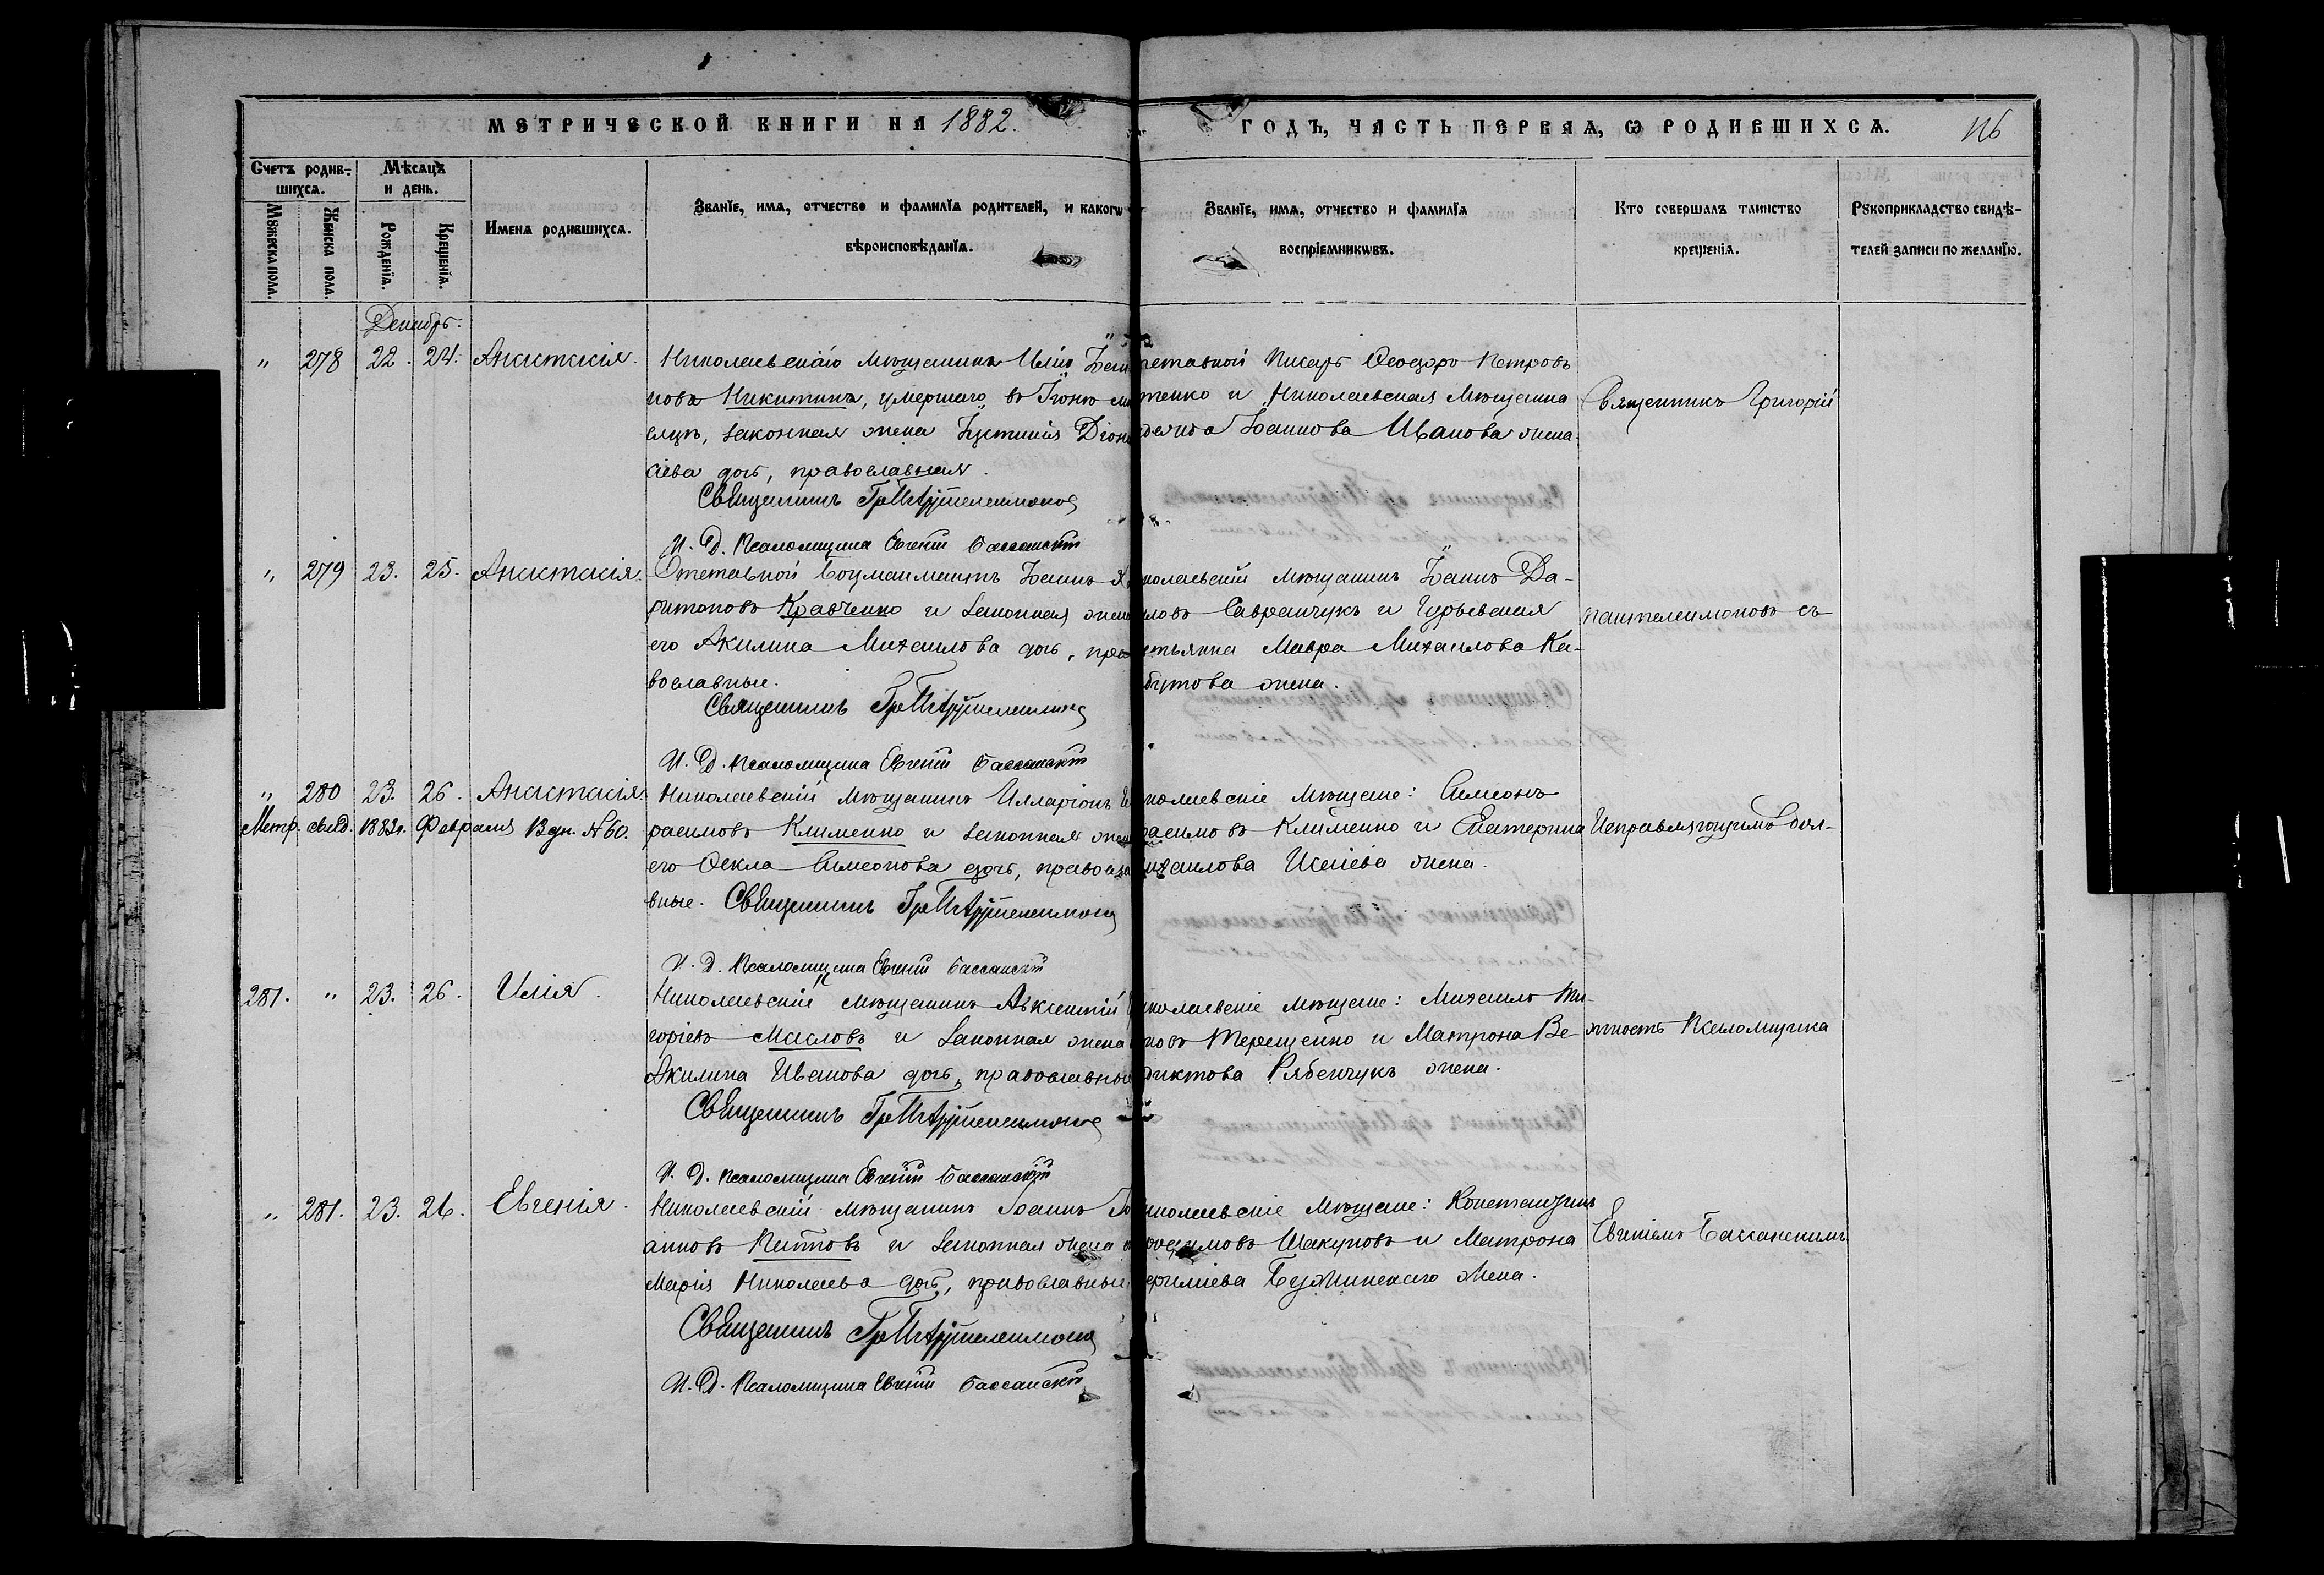 МЕТРИЧЕСКОЙ КНИГИ НА 1882.
ГОДЪ, ЧАСТЬ ПЕРВАѦ, Ѡ РОДИВШИХСѦ.
Счетъ родив-
шихсѧ.
Мѣсѧцъ
и день.
Мꙋжеска пола.
Женска пола.
Рожденїѧ.
Крещенїѧ.
Имена родившихсѧ.
Званїе, имѧ, отчество и фамилїѧ родителей, и какогѡ
вѣроисповѣданїѧ.
Званїе, имѧ, отчество и фамилїѧ
воспрїемникѡвъ.
Кто совершалъ таинство
крещенїѧ.
Рꙋкоприкладство свидѣ-
телей записи по желанїю.
Декабрь.
" 278 22. 24. Анастасія.
Николаевскаго мѣщанина Иліи Іоан
нова Никитина, умершаго въ Іюнѣ мѣ
сяцѣ, законная жена Іустинія Діони
сіева дочь, православная.
Священникъ Гр. Пантелеимоновъ
И. Д. Псаломщика Евгеній Бассанскій
ставной писарь Ѳеодоръ Петровъ
тенко и Николаевская мѣщанка
Іоаннова Иванова жена.
Священникъ Григорій
" 279 23. 25. Анастасія.
Отставной Боцманматъ Іоаннъ Ха
ритоновъ Кравченко и законная жена
его Акилина Михаилова дочь, пра
вославные.
Священникъ Гр. Пантелеимоновъ
И. Д. Псаломщика Евгеній Бассанскій
колаевскій мѣщанинъ Іоаннъ Да-
иловъ Савранчукъ и Гурьевская
стьянка Мавра Михаилова Ка-
бутова жена.
Пантелеимоновъ съ
" 280 23. 26. Анастасія.
Метр. свид. 1883г. Февраля 13 дн. № 60.
Николаевскій мѣщанинъ Илларіонъ Ге
расимовъ Клименко и законная жена
его Ѳекла Симеонова дочь, правосла
вные. Священникъ Гр. Пантелеимоновъ
И. Д. Псаломщика Евгеній Бассанскій
колаевскіе мѣщане: Симеонъ
расимовъ Клименко и Екатерина
ихаилова Исаіева жена.
Исправляющимъ дол-
281. " 23. 26. Илія.
Николаевскій мѣщанинъ Авксентій
горіевъ Масловъ и законная жена
Акилина Иванова дочь, православные
Священникъ Гр. Пантелеимоновъ
И. Д. Псаломщика Евгеній Бассанскій
колаевскіе мѣщане: Михаилъ Ти-
новъ Терещенко и Матрона Ве-
диктова Рябенчукъ жена.
жность Псаломщика
" 281. 23. 26. Евгенія.
Николаевскій мѣщанинъ Іоаннъ Іо
анновъ Китовъ и законная жена
Марія Николаева дочь, православные
Священникъ Гр. Пантелеимоновъ
И. Д. Псаломщика Евгеній Бассанскій
колаевскіе мѣщане: Константинъ
Шакуновъ и Матрона
жена.
Евгеніемъ Бассанскимъ